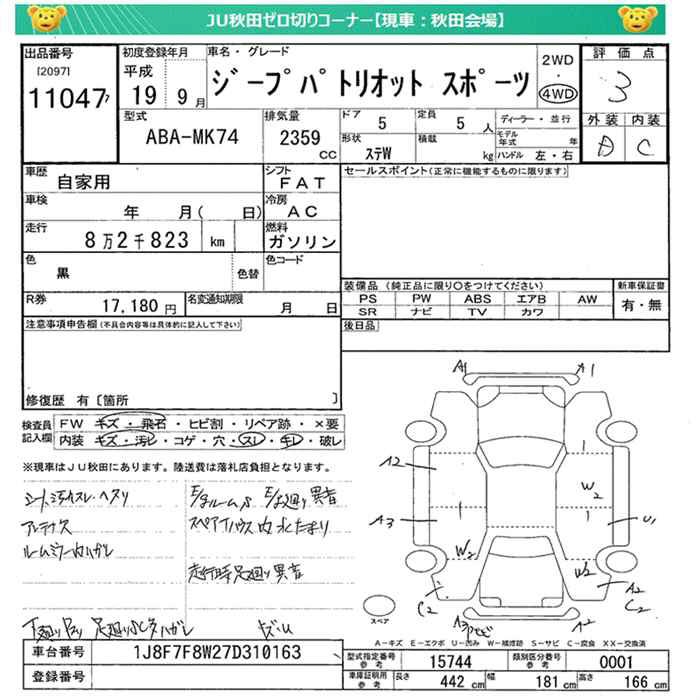 JU秋田ゼロ切りコーナー【現車：秋田会場】
出品番号 初度登録年月 車名・グレード 2WD 評価点
[2097] 平成 ジープパトリオット スポーツ ・ 3
11047 19 9月 4WD
型式 排気量 ドア 5 定員 5人 ディーラー・並行 外装 内装
ABA-MK74 2359 CC 形状 ステW 積載 kg モデル年式 年 A C
ハンドル 左・右
車歴 自家用 シフト FAT セールスポイント(正常に機能するものに限ります)
車検 年 月( 日) 冷房 AC
走行 8万2千823 km 燃料 ガソリン
色 黒 色替 色コード
装備品 (純正品に限り○をつけてください) 新車保証書
PS PW ABS エアB AW 有・無
SR ナビ TV カワ
R券 17,180円 名変通知期限 月 日
後日品
注意事項申告欄(不具合内容等は具体的に記入して下さい)
修復歴 有〔箇所 〕
検査員記入欄 FW キズ・飛石・ヒビ割・リペア跡・×要
内装 キズ・汚レ・コゲ・穴・スレ・キレ・破レ
※現車はJU秋田にあります。陸送費は落札店負担となります。
アンテナ欠
ルームミラー内ハガレ
スペアハウス内水たまり
走行時足廻り異音
A1 A1
A2
W2
A3 U1
W2 W2
C2 A2
C2
A3 A2
スペア
A－キズ E－エクボ U－凹み W－補修跡 S－サビ C－腐食 XX－交換済
車台番号 1J8F7F8W27D310163
登録番号
型式指定番号 参考 15744 類別区分番号 参考 0001
車庫証明用 参考 長さ 442 cm 幅 181 cm 高さ 166 cm